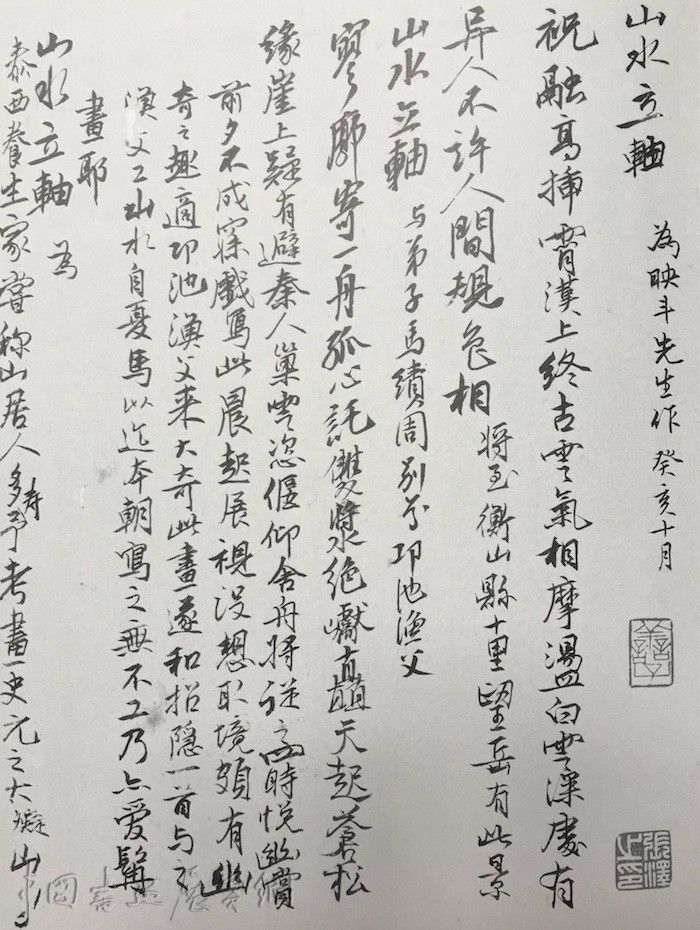 山水立軸 為映斗先生作 癸亥十月
祝融高插霄漢上終古雲氣相摩盪白雲深處有
异人不許人間規色相 將至衡山縣十里望岳有此景
山水立軸 与弟子馬績周別号邛池漁父
寥廓寄一舟孤心託雙槳絕巘直矗天起蒼松
緣崖上疑有避秦人巢雲恣偃仰舍舟將從之時悅幽賞
前夕不成寐戲寫此晨起展視設想取境頗有幽
奇之趣適邛池漁父來大奇此畫遂和招隐一首与之
漁父工山水自夏馬以迄本朝寫之無不工乃亦愛髯
畫耶
山水立軸 為
泰西養生家嘗稱山居人多壽予考畫史元之大癡山
張澤之印